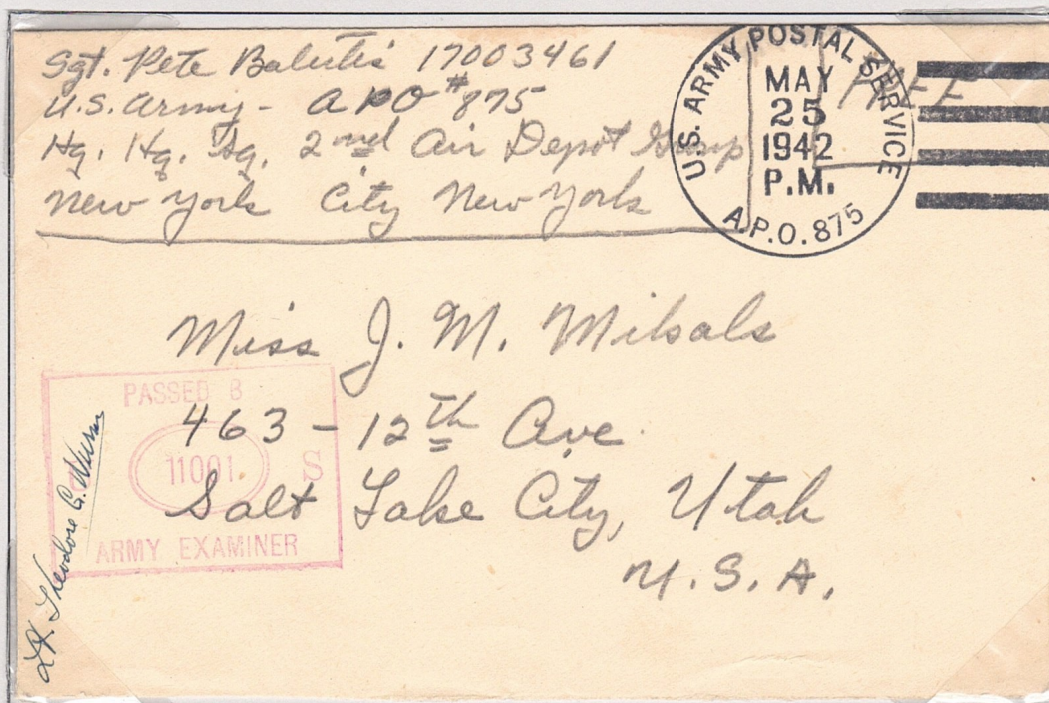 Sgt. Pete Balutis 17003461
U.S. Army - APO #875
Hq. Hq. Sq. 2nd Air Depot Group
New York City New York
FREE
U.S. ARMY POSTAL SERVICE
MAY
25
1942
P.M.
A.P.O. 875
Miss J. M. Mihals
463 - 12th Ave.
Salt Lake City, Utah
U.S.A.
PASSED B
11001 S
ARMY EXAMINER
Lt. Theodore G.